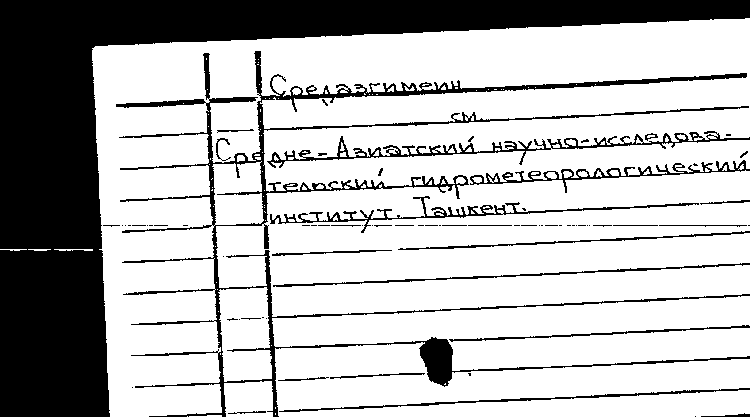 Средазгимеин
см.
Средне-Азиатский научно-исследова-
тельский гидрометеорологический
институт. Ташкент.